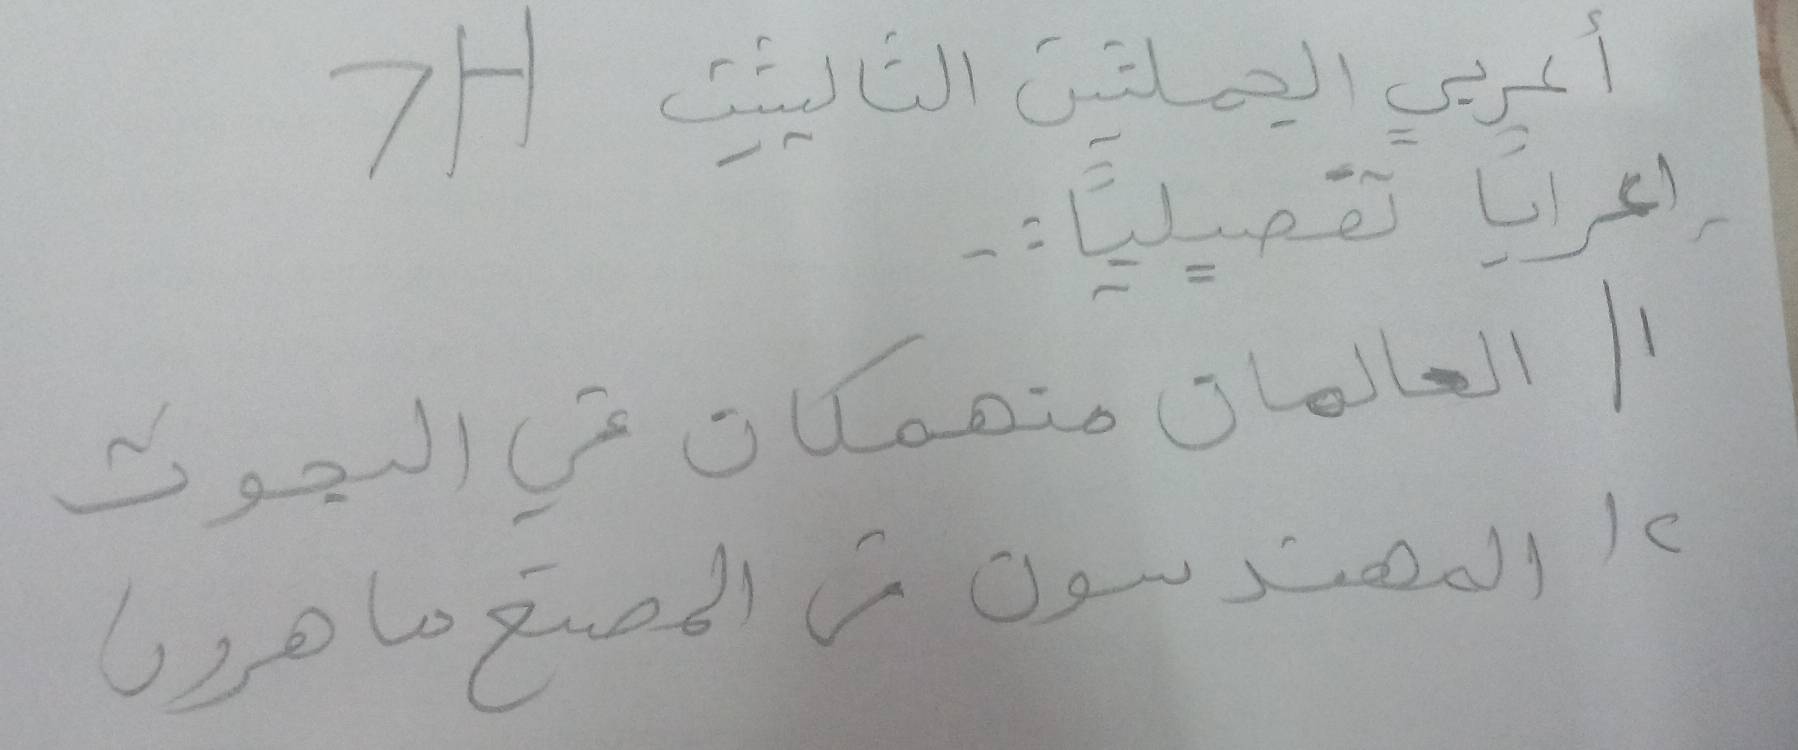 أعربي الجملتين التاليتين 7H
إعرابًا تفصيليًا :-
١/ العالمان منهمكان في البحوث
٢/ المهندسون في المصنع ماهرون